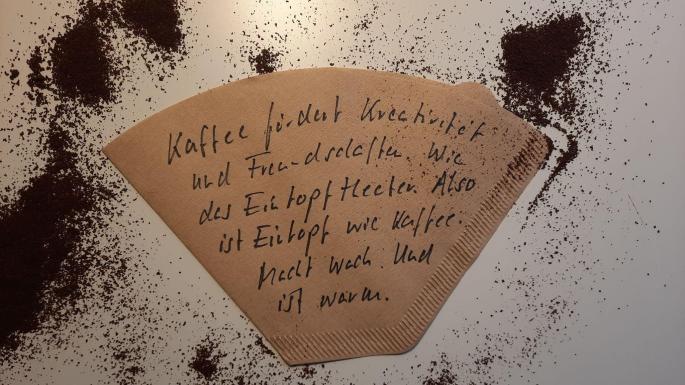 Kaffee fördert Kreativität
und Freundschaften. Wie
das Eintopftheater. Also
ist Eintopf wie Kaffee.
Macht wach. Und
ist warm.